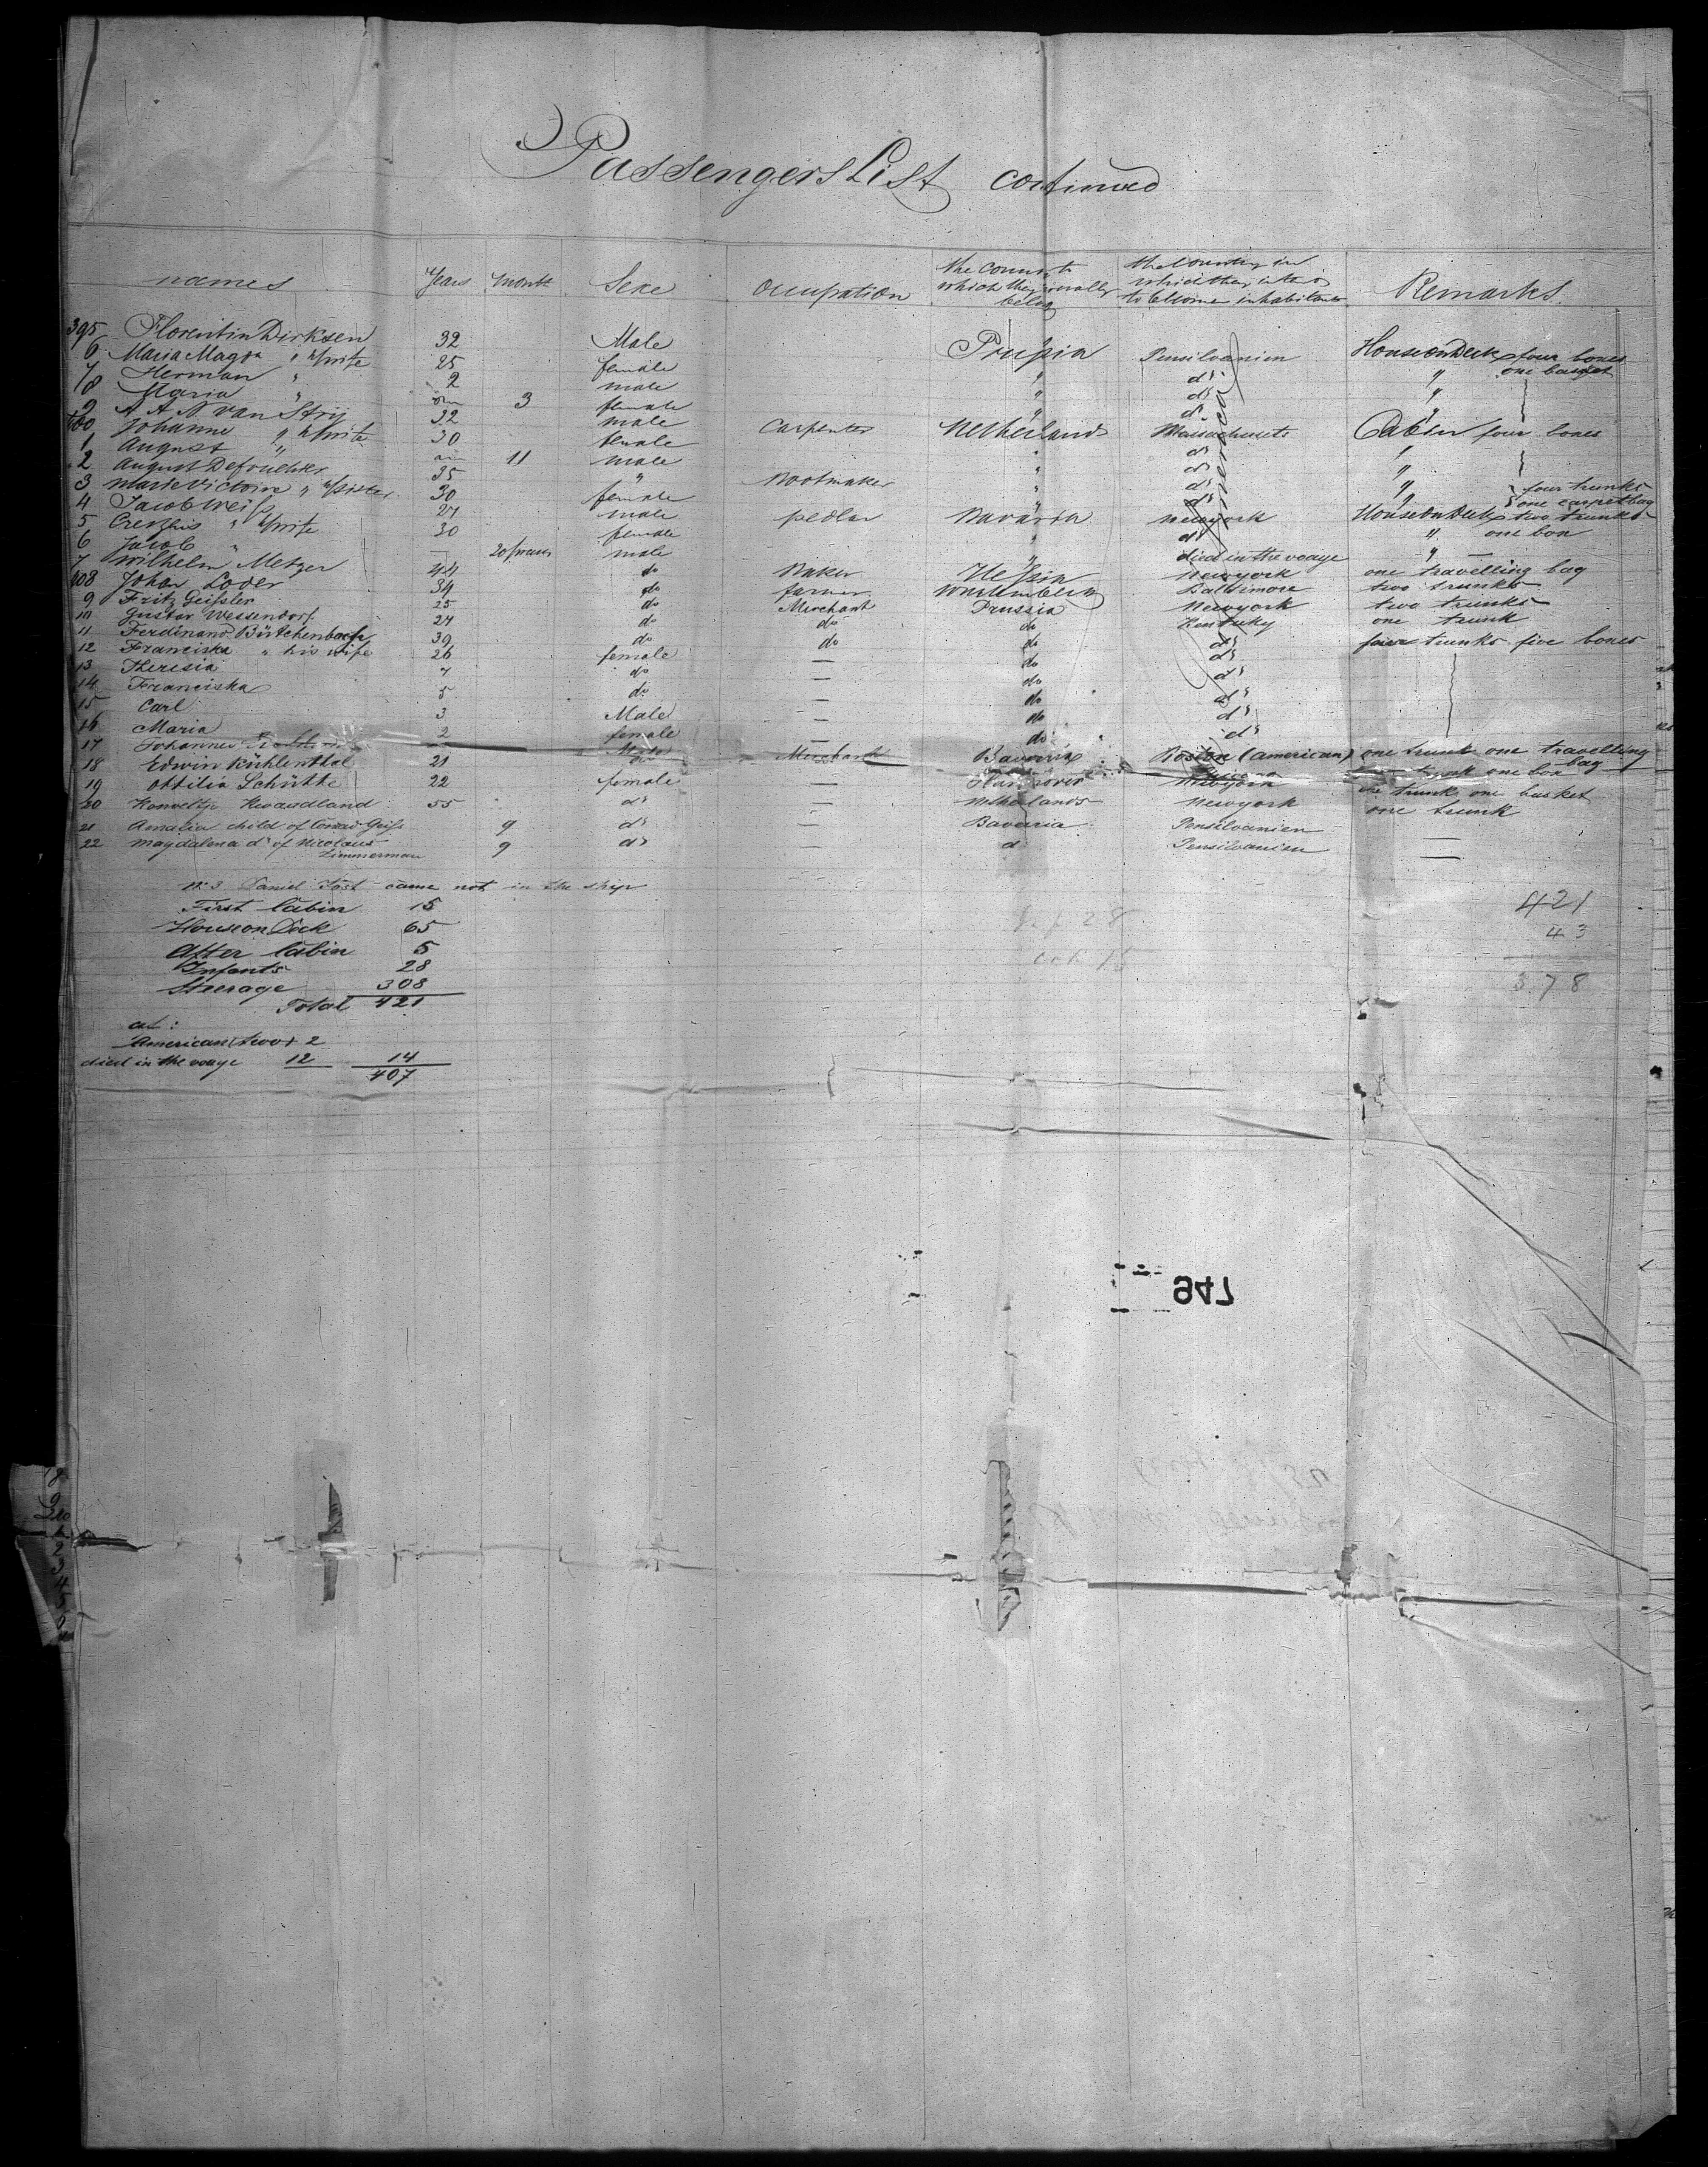 Passengers List continued
names Years Month Sexe Occupation the Country to which they severally belong the Country in which they intend to become inhabitants Remarks
395 Florentin Dirksen 32 Male Prussia Pensilvanien House on Deck four boxes
6 Maria Magda " h/wife 25 female " do " one basket
7 Herman " 2 male " do "
8 Maria " 3 female " do "
9 A A N van Strij 32 male Carpenter Netherlands Massachusets Cabin four boxes
400 Johanne " h/wife 30 female " do "
1 August " 11 male " do "
2 August 35 " Bootmaker " do " four trunks
3 Marie Victoire " h/sister 30 female " do " one carpetbag
4 Jacob Weiss 27 male pedlar Bavaria Newyork House on Deck two trunks
5 " h/wife 30 female " do " one box
6 Jacob " — 20 male " died in the voage "
7 Wilhelm Metzer 44 do Baker Hessia Newyork one travelling bag
408 Johan Loder 34 do farmer Wurtemberg Baltimore two trunks
9 Fritz Geissler 25 do Merchant Prussia Newyork two trunks
10 Gustav Wessendorf 24 do do do Kentucky one trunk
11 Ferdinand Bütchenbach 39 do do do do four trunks five boxes
12 Franciska " his wife 26 female — do do
13 Theresia 7 do — do do
14 Franciska 5 do — do do
15 Carl 3 Male — do do
16 Maria 2 female — do do
17 Johannes Male Merchant Bavaria Boston (american) one trunk one travelling bag
18 Edwin Bühlenthal 21 do one box
19 Ottilia Schütte 22 female — Hannover Newyork one trunk one basket
20 Kwaadland 55 do — Netherlands Newyork one trunk
21 Amalia child of Conrad Geiss 9 do — Bavaria Pensilvanien —
22 Magdalena do of Nicolaus Zimmerman 9 do — d Pensilvanien —
No 3 Daniel Jost came not in the ship
First Cabin 15
House on Deck 65
After Cabin 5
Infants 28
Steerage 308
Total 421
American (two) 2
died in the voage 12 14
407
421
43
378
Sept 28
Oct 15
947